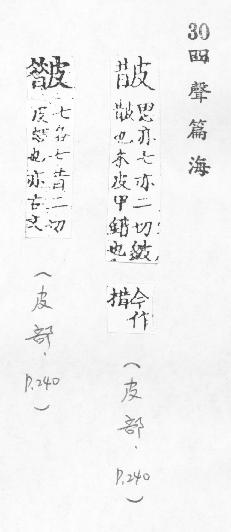 30
四聲篇海
皵
思亦七亦二切皴
皵也亦皮甲錯也
今作
措
(皮部.P.240)
七各七昔二切
也亦古文
(皮部.P.240)